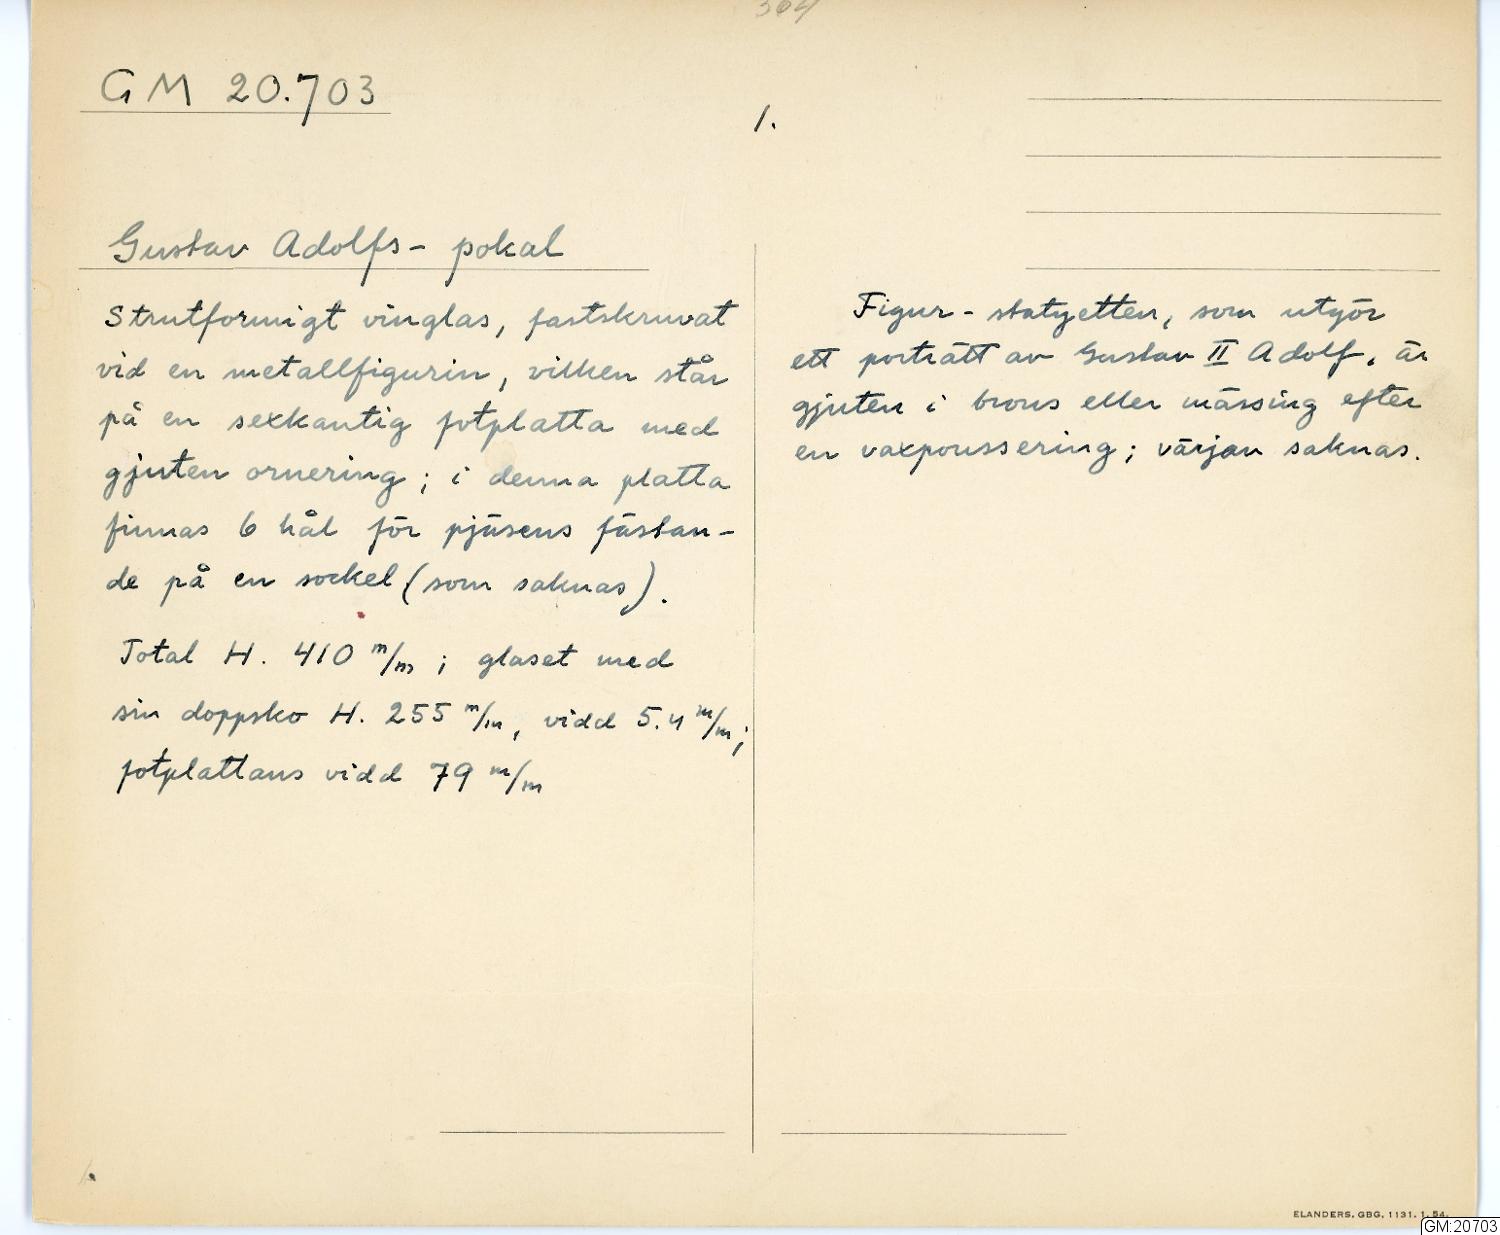 304
GM 20.703
1.
Gustav Adolfs- pokal
Strutformigt vinglas, fastskruvat
vid en metallfigurin, vilken står
på en sexkantig fotplatta med
gjuten ornering; i denna platta
finnas 6 hål för pjäsens fästan-
de på en sockel (som saknas).
Total H. 410 m/m; glaset med
sin doppsko H. 255 m/m, vidd 5.4 m/m;
fotplattans vidd 79 m/m
Figur-statyetten, som utgör
ett porträtt av Gustav II Adolf, är
gjuten i brons eller mässing efter
en vaxpoussering; värjan saknas.
1.
ELANDERS, GBG, 1131. 1. 54.
GM:20703